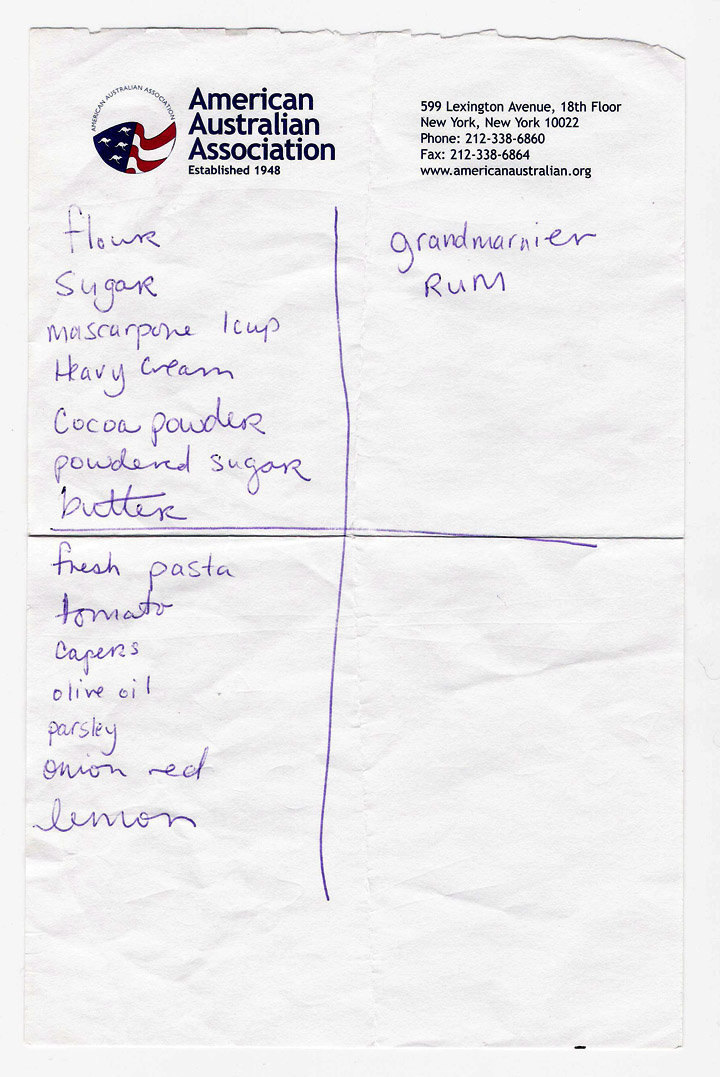 AMERICAN AUSTRALIAN ASSOCIATION
American
Australian
Association
Established 1948
599 Lexington Avenue, 18th Floor
New York, New York 10022
Phone: 212-338-6860
Fax: 212-338-6864
www.americanaustralian.org
flour
Sugar
mascarpone 1cup
Heavy Cream
Cocoa powder
powdered sugar
butter
fresh pasta
tomato
Capers
olive oil
parsley
onion red
lemon
grandmarnier
RUM